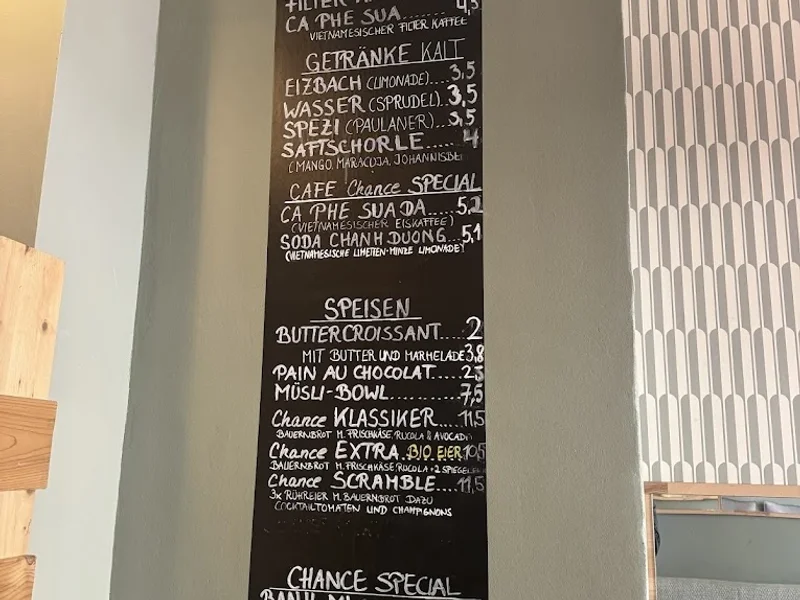 FILTER
CA PHE SUA........ 4,5
VIETNAMESISCHER FILTER KAFFEE
GETRÄNKE KALT
EIZBACH (LIMONADE)....3,5
WASSER (SPRUDEL)..3,5
SPEZI (PAULANER)...3,5
SAFTSCHORLE...... 4
(MANGO, MARACUJA, JOHANNISBE
CAFE Chance SPECIAL
CA PHE SUA DA.....5,2
(VIETNAMESISCHER EISKAFFEE)
SODA CHANH DUONG...5,1
(VIETNAMESISCHE LIMETTEN-MINZE LIMONADE)
SPEISEN
BUTTERCROISSANT....2
MIT BUTTER UND MARMELADE 3,8
PAIN AU CHOCOLAT....
MÜSLI-BOWL.........7,5
Chance KLASSIKER....11,5
BAUERNBROT M. FRISCHKÄSE, RUCOLA & AVOCADO
Chance EXTRA..BIO EIER 10,5
BAUERNBROT M. FRISCHKÄSE, RUCOLA + 2 SPIEGEL
Chance SCRAMBLE....11,5
3x RÜHREIER M. BAUERNBROT DAZU
COCKTAILTOMATEN UND CHAMPIGNONS
CHANCE SPECIAL